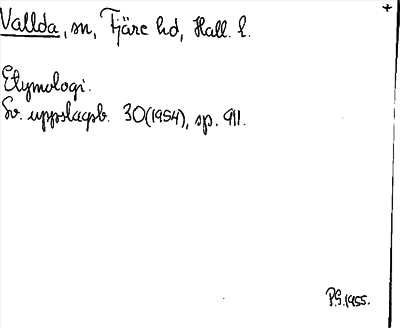 +
Vallda, sn, Fjäre hd, Hall. l.
Etymologi.
Sv. uppslagsb. 30(1954), sp. 911.
P.G.1955.